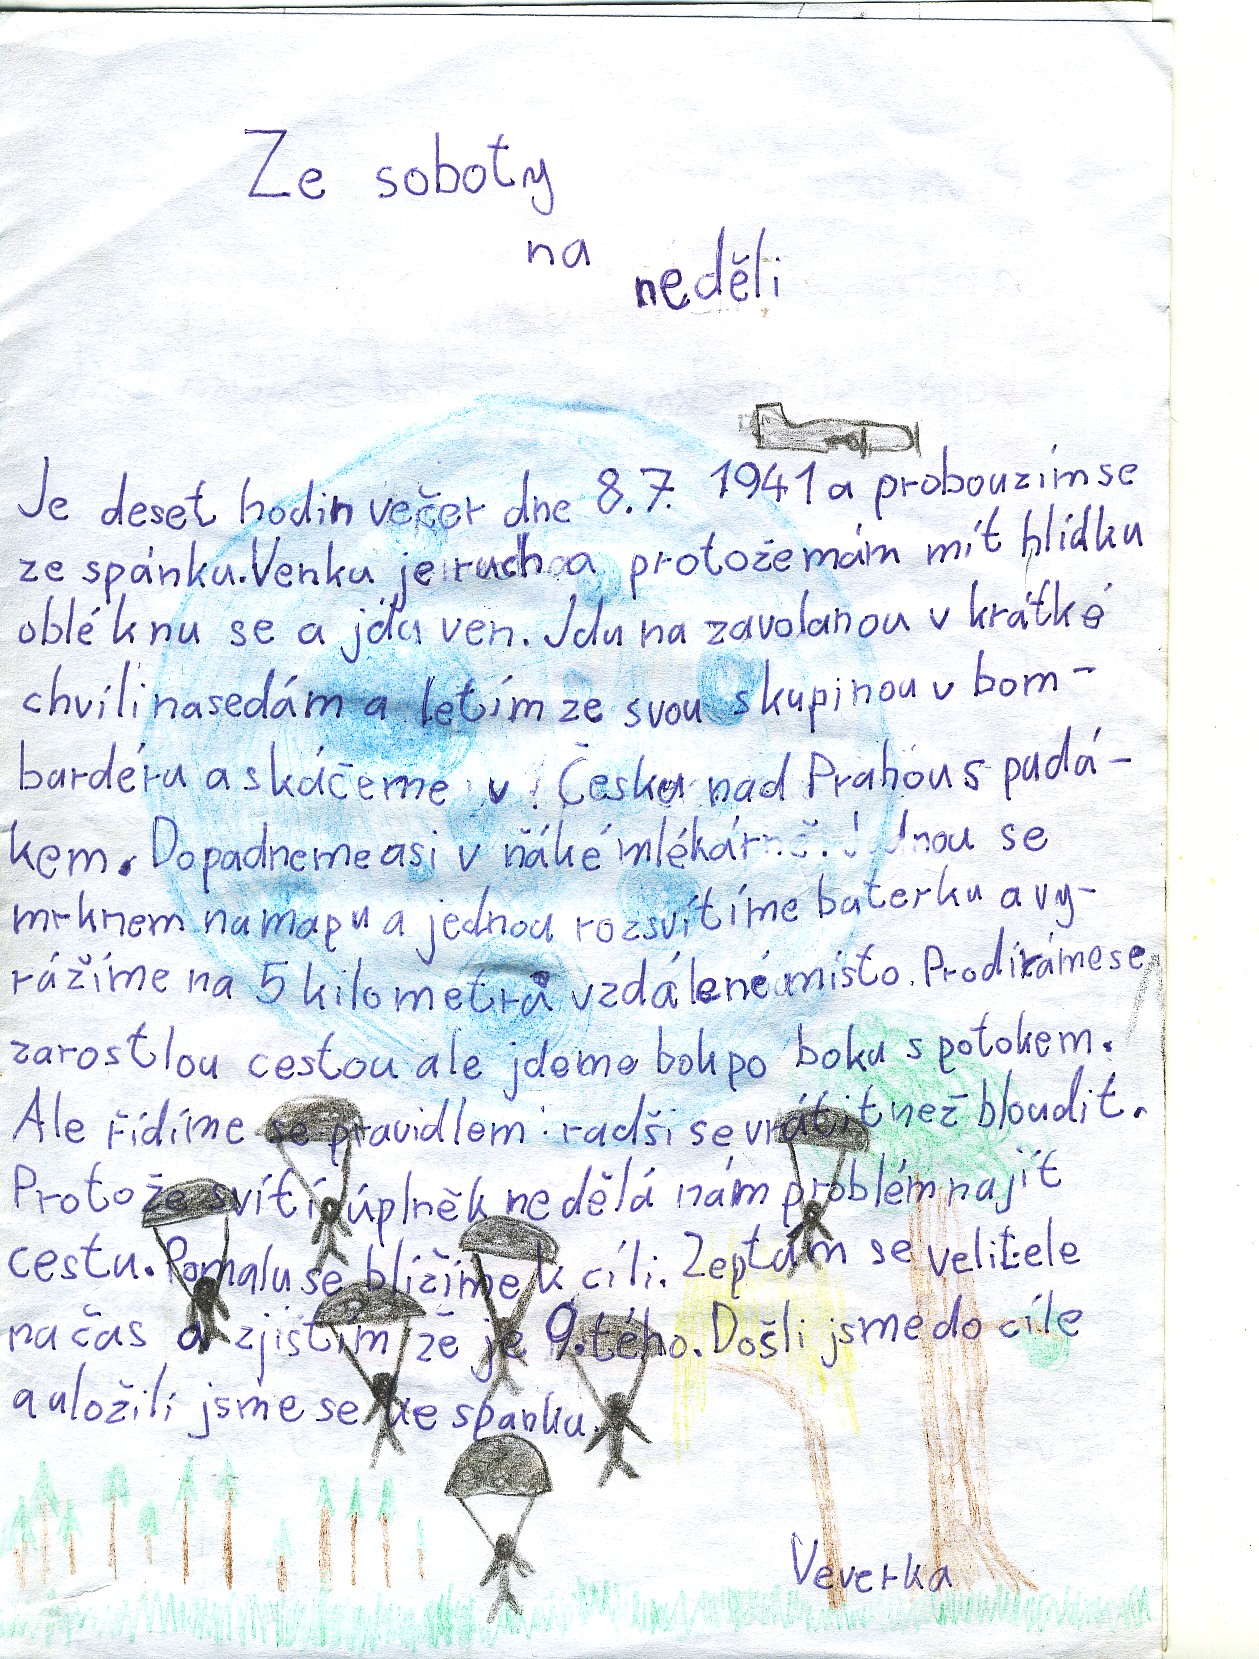 Ze soboty
na
neděli
Je deset hodin večer dne 8.7. 1941 a probouzím se
ze spánku. Venku je ruch a protože mám mít hlídku
obléknu se a jdu ven. Jdu na zavolanou v krátké
chvíli nasedám a letím ze svou skupinou v bom-
bardéru a skáčeme v Česku nad Prahou s padá-
kem. Dopadneme asi v ňáké mlékárně. Jednou se
mrknem na mapu a jednou rozsvítíme baterku a vy-
rážíme na 5 kilometrů vzdálené místo. Prodíráme se
zarostlou cestou ale jdeme bok po boku s potokem.
Ale řídíme se pravidlem: radši se vrátit než bloudit.
Protože svítí úplněk nedělá nám problém najít
cestu. Pomalu se blížíme k cíli. Zeptám se velitele
na čas a zjistím že je 9.tého. Došli jsme do cíle
a uložili jsme se ke spánku.
Veverka